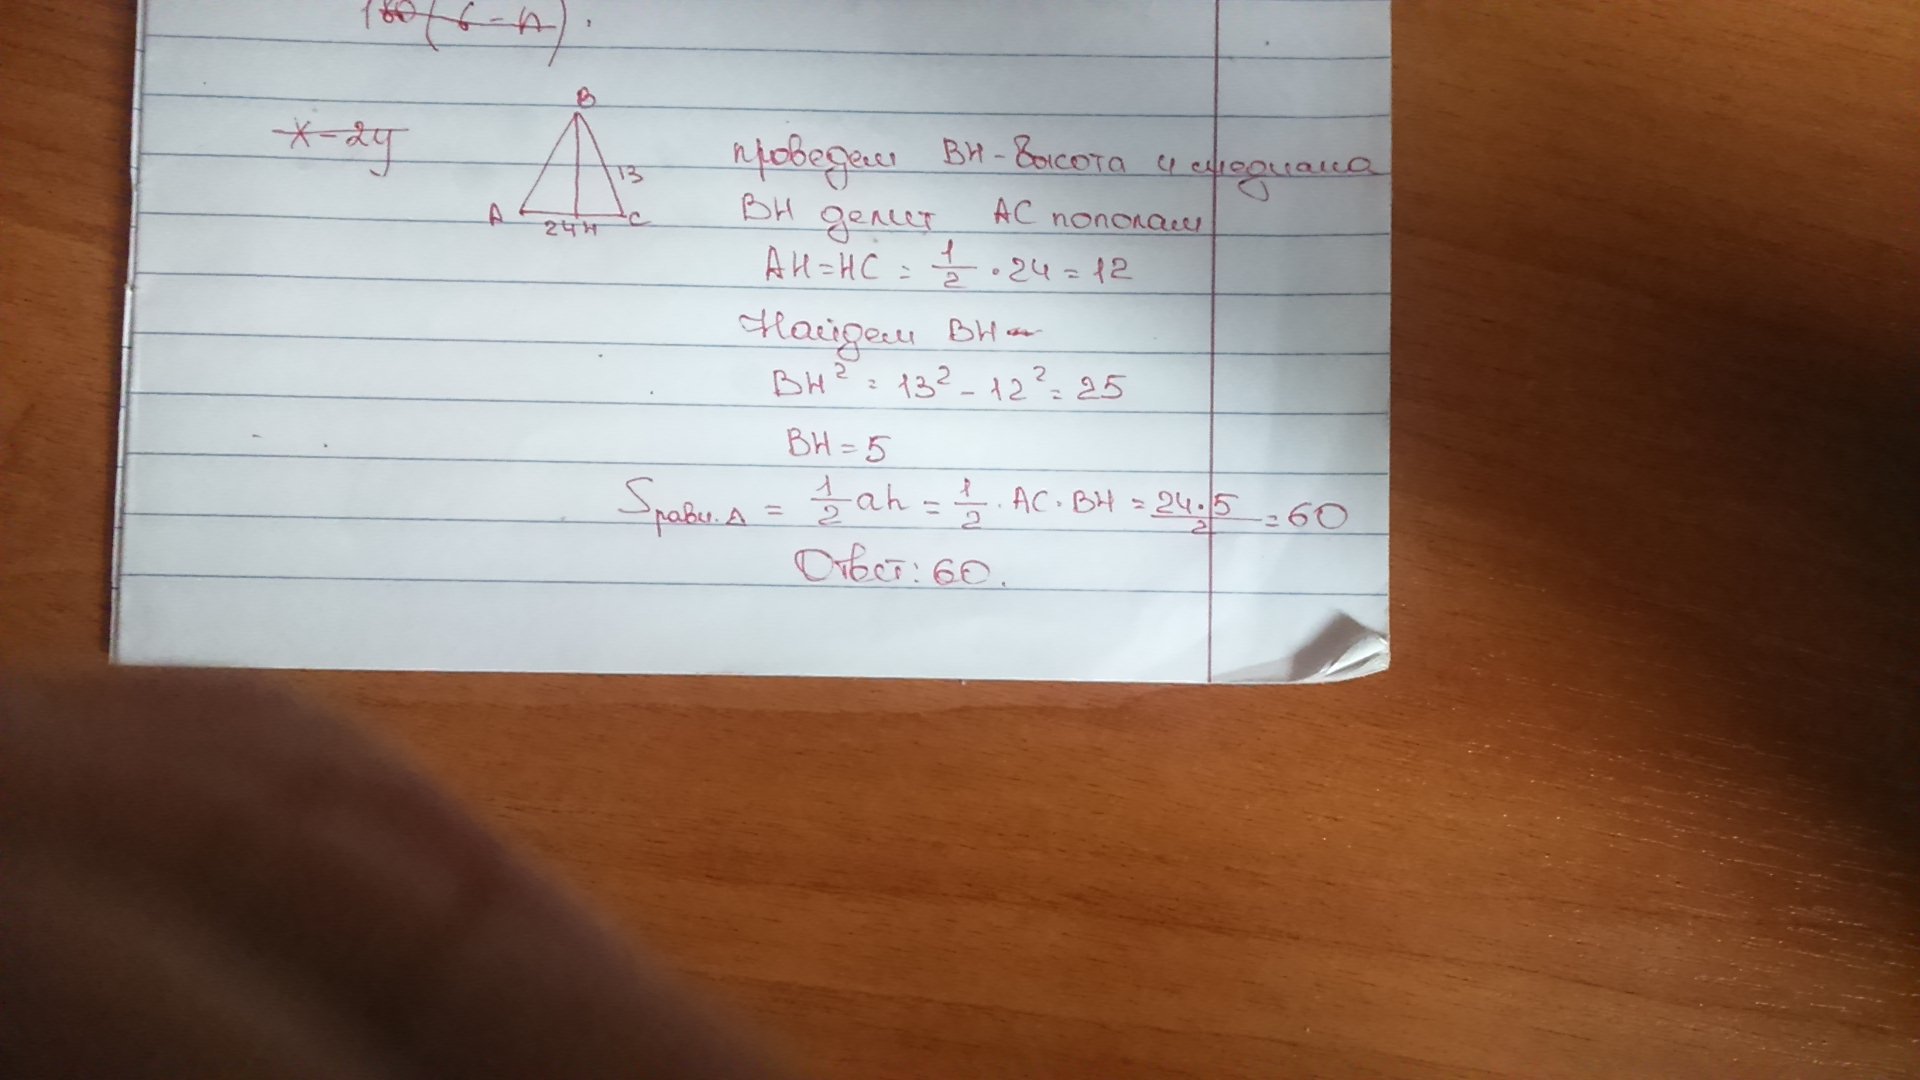 180(6-n).
x-2y
B
13
A
24
H
C
проведем BH-высота и медиана
BH делит AC пополам
AH=HC = 1/2 · 24 = 12
Найдем BH
BH² = 13² - 12² = 25
BH = 5
Sравн.Δ = 1/2 ah = 1/2 · AC · BH = 24·5/2 = 60
Ответ: 60.